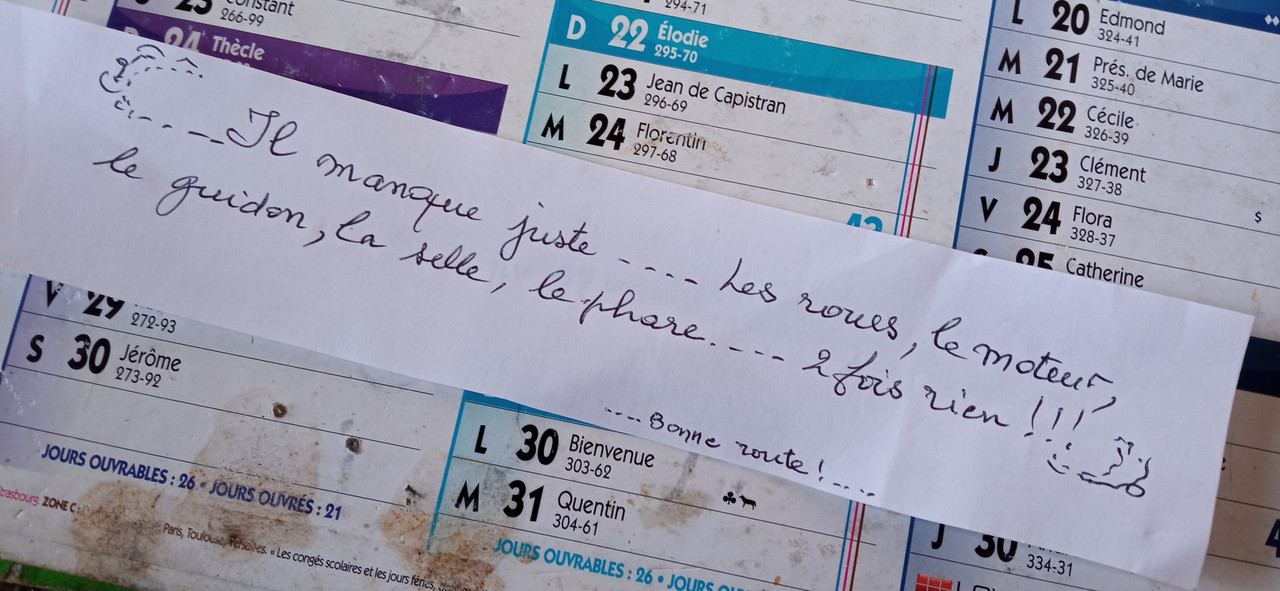 Constant
266-99
24 Thècle
294-71
D 22 Élodie
295-70
L 23 Jean de Capistran
296-69
M 24 Florentin
297-68
L 20 Edmond
324-41
M 21 Prés. de Marie
325-40
M 22 Cécile
326-39
J 23 Clément
327-38
V 24 Flora
328-37
25 Catherine
Il manque juste .... Les roues, le moteur,
le guidon, la selle, le phare..... 2 fois rien !!!
....Bonne route!....
V 29
272-93
S 30 Jérôme
273-92
JOURS OUVRABLES : 26 • JOURS OUVRÉS : 21
Strasbourg. ZONE C :
Paris, Toulouse, Versailles. « Les congés scolaires et les jours fériés,
L 30 Bienvenue
303-62
M 31 Quentin
304-61
JOURS OUVRABLES : 26 • JOURS
J 30
334-31